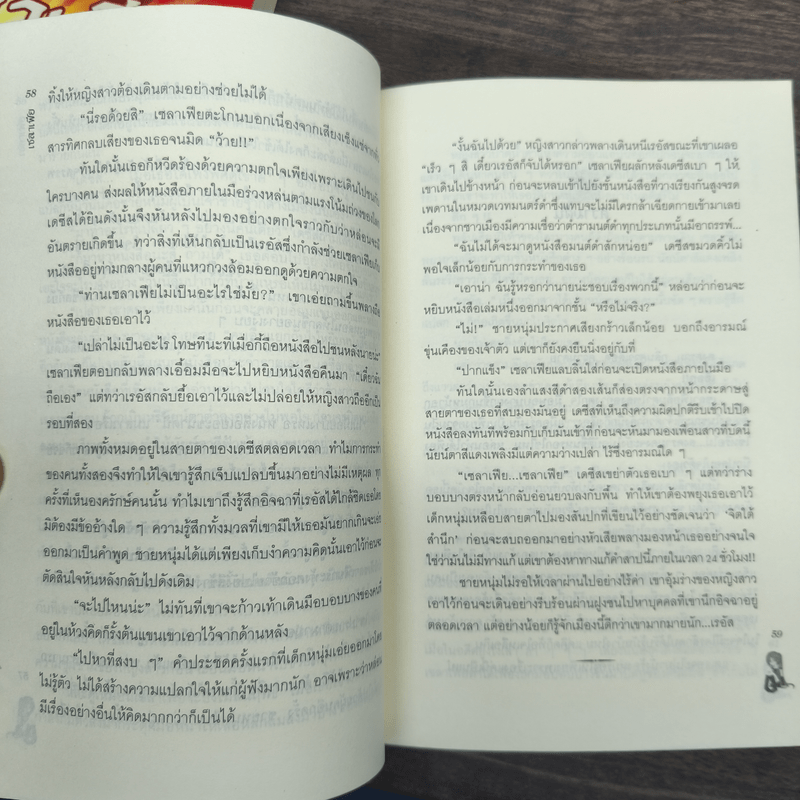 58
เซลาเฟีย
ทิ้งให้หญิงสาวต้องเดินตามอย่างช่วยไม่ได้
"นี่รอด้วยสิ" เซลาเฟียตะโกนบอกเนื่องจากเสียงเซ็งแซ่จาก
สารทิศกลบเสียงของเธอจนมิด "ว้าย!!"
ทันใดนั้นเธอก็หวีดร้องด้วยความตกใจเพียงเพราะเดินไปชน
ใครบางคน ส่งผลให้หนังสือภายในมือร่วงหล่นตามแรงโน้มถ่วง
เดซีสได้ยินดังนั้นจึงหันหลังไปมองอย่างตกใจราวกับว่าหล่อน
อันตรายเกิดขึ้น ทว่าสิ่งที่เห็นกลับเป็นเรอัสซึ่งกำลังช่วยเซลาเฟีย
หนังสืออยู่ท่ามกลางผู้คนที่แหวกวงล้อมออกดูด้วยความตกใจ
"ท่านเซลาเฟียไม่เป็นอะไรใช่มั้ย?" เขาเอ่ยถามขึ้นพลาง
หนังสือของเธอเอาไว้
"เปล่าไม่เป็นอะไร โทษทีนะที่เมื่อกี้ถือหนังสือไปชนหลังนายน่ะ"
เซลาเฟียตอบกลับพลางเอื้อมมือจะไปหยิบหนังสือคืนมา "เดี๋ยวฉัน
ถือเอง" แต่ทว่าเรอัสกลับยื้อเอาไว้และไม่ปล่อยให้หญิงสาวถืออีกเป็น
รอบที่สอง
ภาพทั้งหมดอยู่ในสายตาของเดซีสตลอดเวลา ทำไมการกระทำ
ของคนทั้งสองจึงทำให้ใจเขารู้สึกเจ็บแปลบขึ้นมาอย่างไม่มีเหตุผล ทุก
ครั้งที่เห็นองครักษ์คนนั้น ทำไมเขาถึงรู้สึกอิจฉาที่เรอัสได้ใกล้ชิดเธอโดย
มิต้องมีข้ออ้างใด ๆ ความรู้สึกทั้งมวลที่เขามีให้เธอมันยากเกินจะเอ่ย
ออกมาเป็นคำพูด ชายหนุ่มได้แต่เพียงเก็บงำความคิดนั้นเอาไว้ก่อนจะ
ตัดสินใจหันหลังกลับไปดังเดิม
"จะไปไหนน่ะ" ไม่ทันที่เขาจะก้าวเท้าเดินมือบอบบางของคนที่
อยู่ในห้วงคิดก็รั้งต้นแขนเขาเอาไว้จากด้านหลัง
"ไปหาที่สงบ ๆ" คำประชดครั้งแรกที่เด็กหนุ่มเอ่ยออกมาโดย
ไม่รู้ตัว ไม่ได้สร้างความแปลกใจให้แก่ผู้ฟังมากนัก อาจเพราะว่าหล่อน
มีเรื่องอย่างอื่นให้คิดมากกว่าก็เป็นได้
"งั้นฉันไปด้วย" หญิงสาวกล่าวพลางเดินหนีเรอัสขณะที่เขาเผลอ
"เร็ว ๆ สิ เดี๋ยวเรอัสก็จับได้หรอก" เซลาเฟียผลักหลังเดซีสเบา ๆ ให้
เขาเดินไปข้างหน้า ก่อนจะหลบเข้าไปยังชั้นหนังสือที่วางเรียงกันสูงจรด
เพดานในหมวดเวทมนตร์ดำซึ่งแทบจะไม่มีใครกล้าเฉียดกายเข้ามาเลย
เนื่องจากชาวเมืองมีความเชื่อว่าตำรามนต์ดำทุกประเภทนั้นมีอาถรรพ์...
"ฉันไม่ได้จะมาดูหนังสือมนต์ดำสักหน่อย" เดซีสขมวดคิ้วไม่
พอใจเล็กน้อยกับการกระทำของเธอ
"เอาน่า ฉันรู้หรอกว่านายน่ะชอบเรื่องพวกนี้" หล่อนว่าก่อนจะ
หยิบหนังสือเล่มหนึ่งออกมาจากชั้น "หรือไม่จริง?"
"ไม่!" ชายหนุ่มประกาศเสียงกร้าวเล็กน้อย บอกถึงอารมณ์
ขุ่นเคืองของเจ้าตัว แต่เขาก็ยังคงยืนนิ่งอยู่กับที่
"ปากแข็ง" เซลาเฟียแลบลิ้นใส่ก่อนจะเปิดหนังสือภายในมือ
ทันใดนั้นเองลำแสงสีดำสองเส้นก็ส่องตรงจากหน้ากระดาษสู่
สายตาของเธอที่สบมองมันอยู่ เดซีสที่เห็นถึงความผิดปกติรีบเข้าไปปิด
หนังสือลงทันทีพร้อมกับเก็บมันเข้าที่ก่อนจะหันมามองเพื่อนสาวที่บัดนี้
นัยน์ตาสีแดงเพลิงมีแต่ความว่างเปล่า ไร้ซึ่งอารมณ์ใด ๆ
"เซลาเฟีย...เซลาเฟีย" เดซีสเขย่าตัวเธอเบา ๆ แต่ทว่าร่าง
บอบบางตรงหน้ากลับอ่อนยวบลงกับพื้น ทำให้เขาต้องพยุงเธอเอาไว้
เด็กหนุ่มเหลือบสายตาไปมองสันปกที่เขียนไว้อย่างชัดเจนว่า 'จิตใต้
สำนึก' ก่อนจะสบถออกมาอย่างหัวเสียพลางมองหน้าเธออย่างจนใจ
ใช่ว่ามันไม่มีทางแก้ แต่เขาต้องหาทางแก้คำสาปนี้ภายในเวลา 24 ชั่วโมง!!
ชายหนุ่มไม่รอให้เวลาผ่านไปอย่างไร้ค่า เขาอุ้มร่างของหญิงสาว
เอาไว้ก่อนจะเดินอย่างรีบร้อนผ่านฝูงชนไปหาบุคคลที่เขานึกอิจฉาอยู่
ตลอดเวลา แต่อย่างน้อยก็รู้จักเมืองนี้ดีกว่าเขามากมายนัก...เรอัส
59